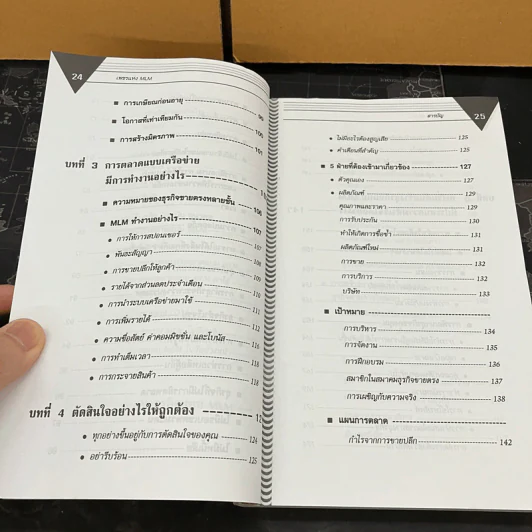 24
เพชรแท้ง MLM
■ การเกษียณก่อนอายุ 99
■ โอกาสที่เท่าเทียมกัน 100
■ การสร้างมิตรภาพ 101
บทที่ 3 การตลาดแบบเครือข่าย
มีการทำงานอย่างไร
■ ความหมายของธุรกิจขายตรงหลายชั้น 106
■ MLM ทำงานอย่างไร 107
● การให้การสปอนเซอร์ 107
● พันธะสัญญา 108
● การขายปลีกให้ลูกค้า 109
● รายได้จากส่วนลดประจำเดือน 110
● การนำระบบเครือข่ายมาใช้ 111
● การเพิ่มรายได้ 112
● ความซื่อสัตย์ ค่าคอมมิชชั่น และโบนัส 116
● การทำเต็มเวลา 118
● การกระจายสินค้า 118
บทที่ 4 ตัดสินใจอย่างไรให้ถูกต้อง
● ทุกอย่างขึ้นอยู่กับการตัดสินใจของคุณ 124
● อย่ารีบร้อน 125
สารบัญ 25
● ไม่มีอะไรต้องสูญเสีย 125
● คำเตือนที่สำคัญ 125
■ 5 ฝ่ายที่ต้องเข้ามาเกี่ยวข้อง 127
● ตัวคุณเอง 127
● ผลิตภัณฑ์ 129
คุณภาพและราคา 129
การรับประกัน 130
ทำให้เกิดการซื้อซ้ำ 131
ผลิตภัณฑ์ใหม่ 131
การขาย 132
การบริการ 132
บริษัท 133
■ เป้าหมาย
การบริหาร 134
การจัดงาน 135
การฝึกอบรม 136
สมาชิกในสมาคมธุรกิจขายตรง 137
การเผชิญกับความจริง 138
■ แผนการตลาด
กำไรจากการขายปลีก 142